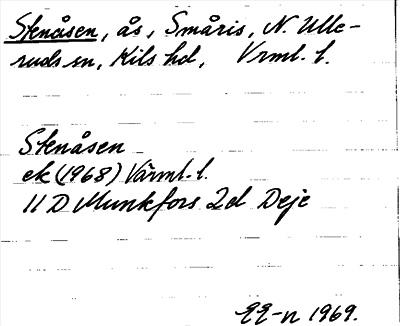 Stenåsen, ås, Småris, N. Ulle-
ruds sn, Kils hd, Vrml. l.
Stenåsen
ek (1968) Värml. l.
11 D Munkfors 2d Deje
1969.